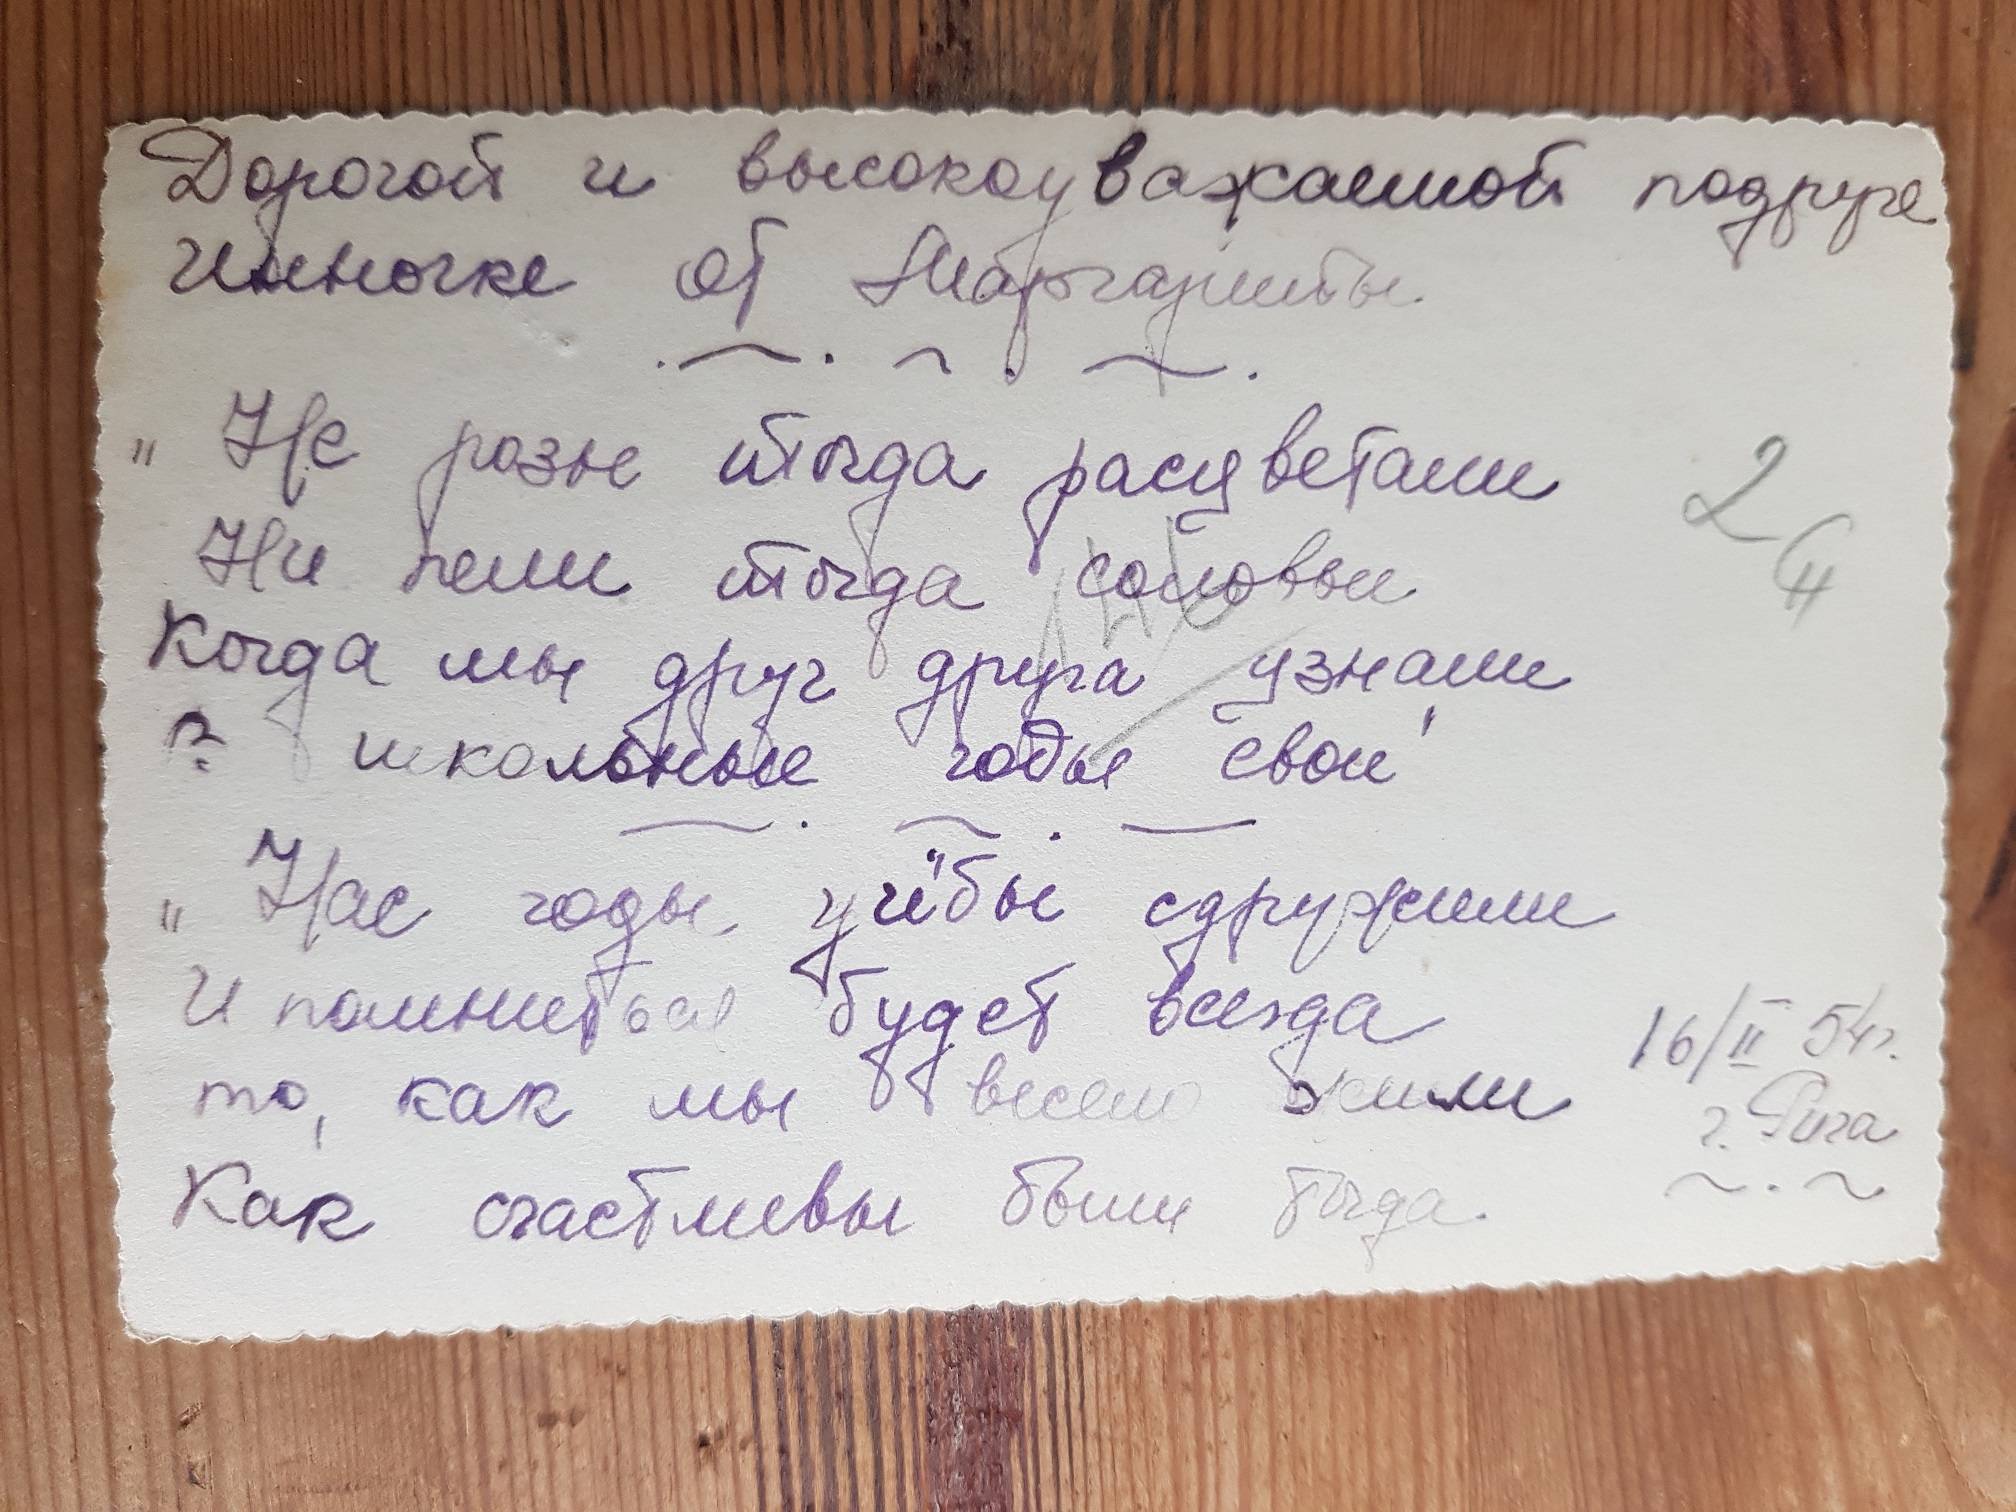 Дорогой и высокоуважаемой подруге
Инночке от Маргариты.
"Не розы тогда расцветали
Ни пели тогда соловьи
Когда мы друг друга узнали
В школьные годы свои"
"Нас годы учёбы сдружили
И помниться будет всегда
то, как мы весело жили
Как счастливы были тогда.
16/II 54г.
г. Рига